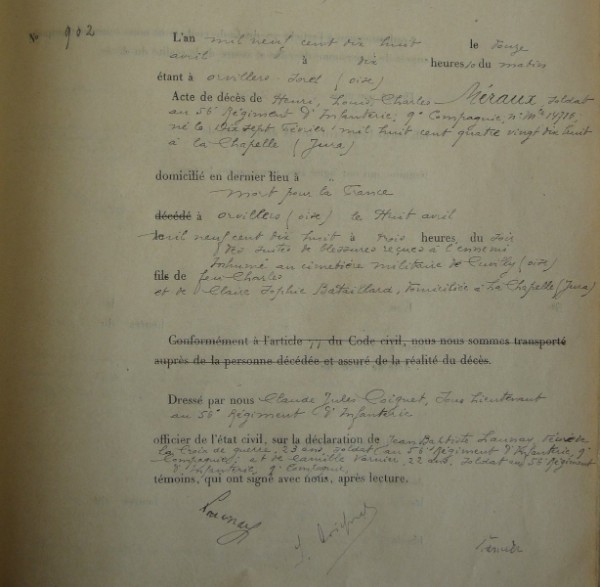 N° 902
L'an mil neuf cent dix huit le onze
avril à dix heures, du matin
étant à orvillers-Sorel (oise)
Acte de décès de Henri, Louis Charles Méraux, soldat
au 56e Régiment d'Infanterie, 9e Compagnie, n° Mle 14710,
né le Dix sept Février mil huit cent quatre vingt dix huit
à la Chapelle (Jura)
domicilié en dernier lieu à "
mort pour la France
décédé à orvillers (oise) le Huit avril
mil neuf cent dix huit à trois heures, du soir
des suites de blessures reçues à l'ennemi
Inhumé au cimetière militaire de Cuvilly (oise)
fils de feu Charles
et de Claire Sophie Bataillard, domiciliée à La Chapelle (Jura)
Conformément à l'article 77 du Code civil, nous nous sommes transporté
auprès de la personne décédée et assuré de la réalité du décès.
Dressé par nous Claude Jules Coignet, Sous Lieutenant
au 56e Régiment d'Infanterie
officier de l'état civil, sur la déclaration de Jean Baptiste Launay, décoré de
la Croix de guerre, 23 ans, soldat au 56e Régiment d'Infanterie, 9e
Compagnie, et de Camille Varnier, 22 ans, soldat au 56e Régiment
d'Infanterie, 9e Compagnie
témoins, qui ont signé avec nous, après lecture.
Launay J. Coignet